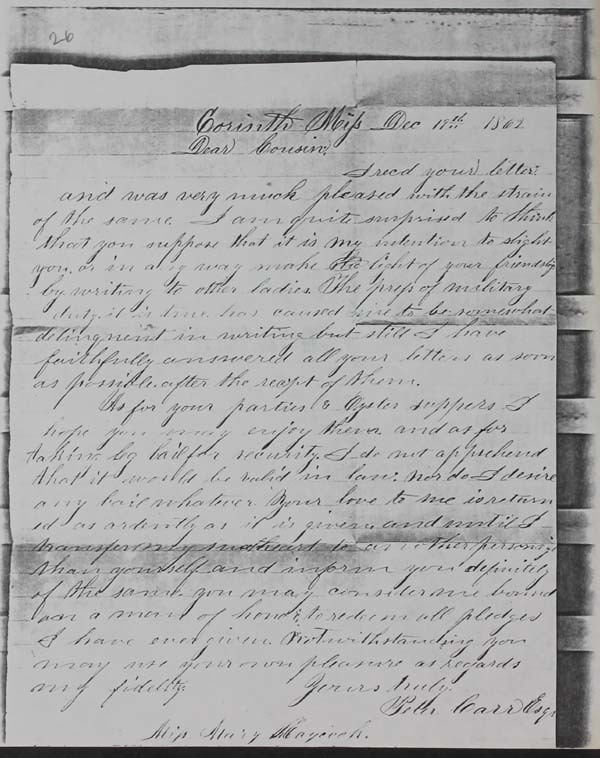 26
Corinth Miss Dec 19th 1862
Dear Cousin,
I recd your letter
and was very much pleased with the strain
of the same. I am quite surprised to think
that you suppose that it is my intention to slight
you, or in any way make light of your friendship
by writing to other ladies. The press of military
duty it is true has caused me to be somewhat
delinquent in writing but still I have
faithfully answered all your letters as soon
as possible after the recpt of them.
As for your parties & Oyster suppers I
hope you may enjoy them. and as for
taking leg bail for security. I do not apprehend
that it would be valid in law: nor do I desire
any bail whatever. Your love to me is return
ed as ardently as it is given. and until I
transfer my to another person
than yourself and inform you definitely
of the same you may consider me bound
as a man of honor to redeem all pledges
I have ever given. Notwithstanding you
may use your own pleasure as regards
my fidelity. Yours truly.
Peter Carr Esq.
Miss Mary Haycock.